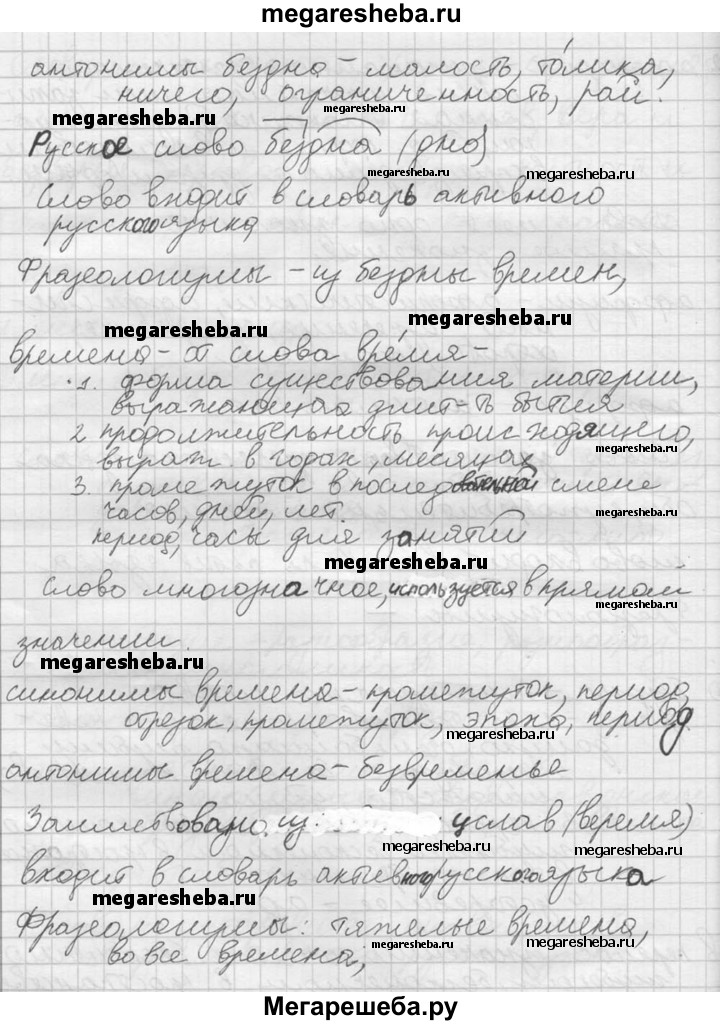 megaresheba.ru
антонимы бездна - малость, то́лика,
ничего, ограниченность, рай.
megaresheba.ru
megaresheba.ru
Русское слово бездна (дно)
megaresheba.ru
megaresheba.ru
Слово входит в словарь активного
русского языка
Фразеологизмы - из бездны времен,
megaresheba.ru
megaresheba.ru
времена - от слова вре́мя -
1. форма существования материи,
выражающая длит-ть бытия
2 продолжительность происходящего,
выраж в годах, месяцах
megaresheba.ru
3. промежуток в последовательной смене
часов, дней, лет.
megaresheba.ru
период, часы для занятий
megaresheba.ru
слово многозначное, используется в прямом
megaresheba.ru
значении.
megaresheba.ru
синонимы времена - промежуток, период,
отрезок, промежуток, эпоха, период
megaresheba.ru
антонимы времена - безвременье
Заимствовано из цслав (веремя)
megaresheba.ru
входит в словарь активного русского языка
megaresheba.ru
Фразеологизмы: тяжелые времена,
megaresheba.ru
megaresheba.ru
во все времена;
Мегарешеба.ру